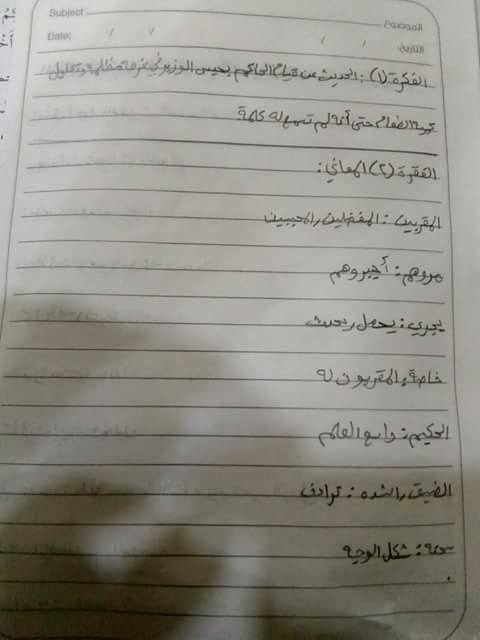 Subject: الموضوع
Date: / / / / التاريخ
الفكرة (١) : الحديث عن قيام الحاكم بحبس الوزير في غرفة مظلمة وتقليل
الطعام حتى أنه لم تسمع له كلمة
الفقرة (٢) المعاني :
المقربين : المفضلين والمحببين
مروهم : أجبروهم
يجري : يحصل ويحدث
خاصة : المقربون له
الحكيم : واسع العلم
الضيق والشده : ترادف
سحنة : شكل الوجه